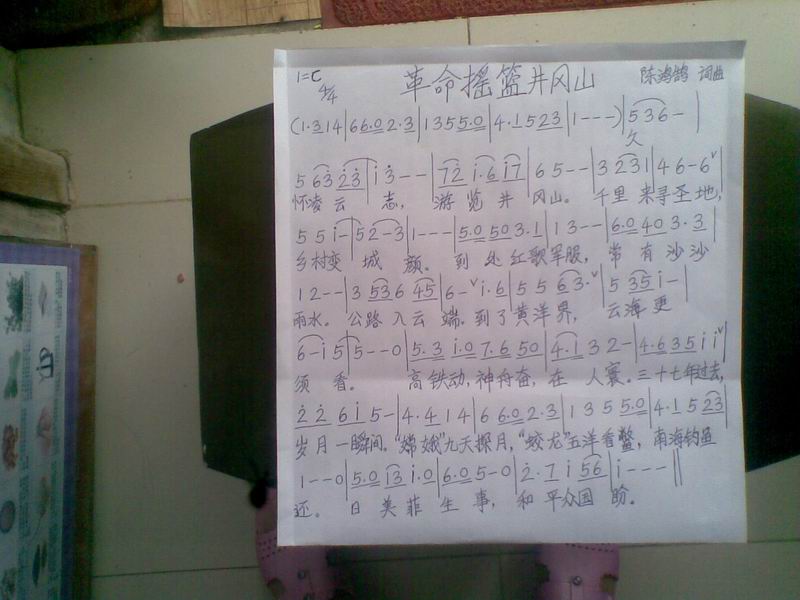 1=C 4/4 革命摇篮井冈山 陈鸿鹄 词曲
(1·3 1 4|6 6·0 2·3|1 3 5 5·0|4·1 5 2 3|1---)|5 3 6-|
久
5 6 3 2 3|i 3--|7 2 i·6 i 7|6 5--|3 2 3 1|4 6-6ˇ|
怀凌云 志, 游览井冈山。千里来寻圣地,
5 5 i-|5 2-3|1---|5·0 5 0 3·1|1 3--|6·0 4 0 3·3|
乡村变 城 颜。到处红歌军服,常有沙沙
1 2--|3 5 3 6 4 5|6-ˇi·6|5 5 6 3·ˇ|5 3 5 i-|
雨水。公路入云端。到了黄洋界, 云海更
6-i 5|5--0|5·3 i·0 7·6 5 0|4·i 3 2-|4·6 3 5 i iˇ|
须看。 高铁动,神舟奋,在人寰。三十七年过去,
2 2 6 i 5-|4·4 1 4|6 6·0 2·3|1 3 5 5·0|4·1 5 2 3|
岁月一瞬间。"嫦娥"九天探月,"蛟龙"五洋看鳖,南海钓鱼
1--0|5·0 i 3 i·0|6·0 5-0|2·7 i 5 6|i---‖
还。日美菲生事,和平众国盼。